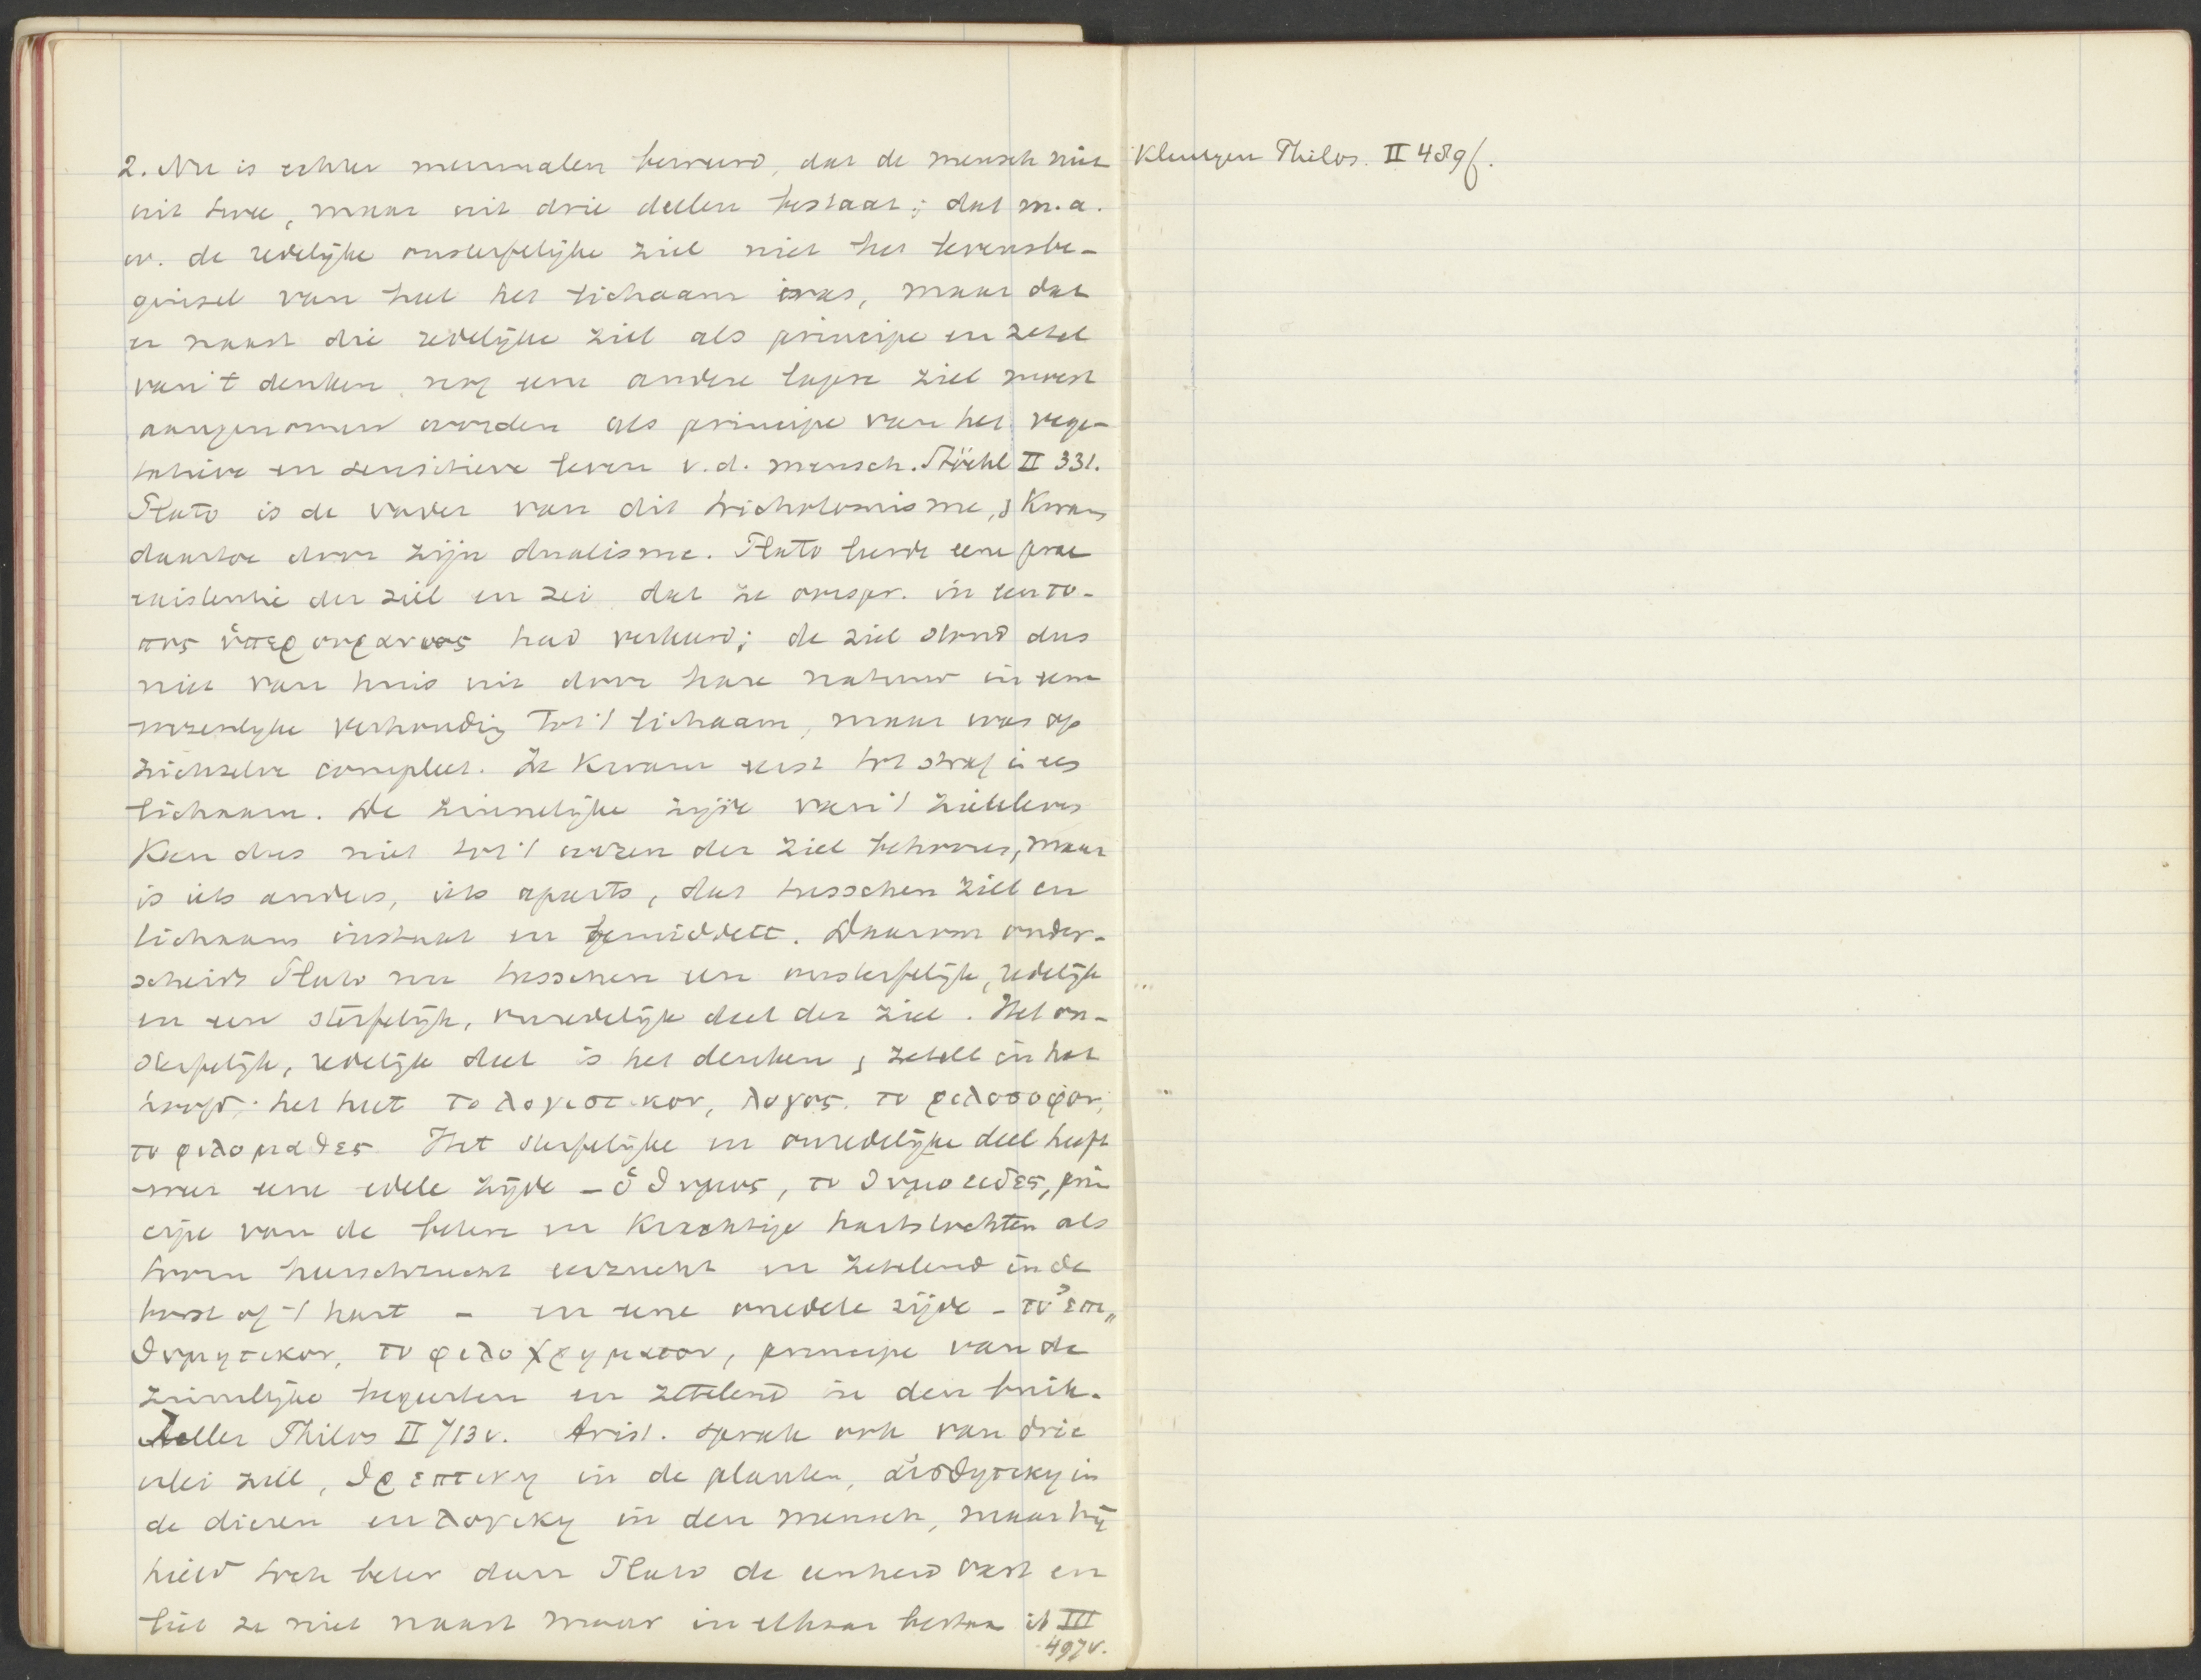 2. Nu is echter meermalen beweerd, dat de mensch niet
uit twee, maar uit drie deelen bestaat; dat m.a.
w. de redelijke onsterfelijke ziel niet het levensbe-
ginsel van heel het lichaam was, maar dat
er naast die redelijke ziel als principe en zetel
van 't denken nog eene andere lagere ziel moest
aangenomen worden als principe van het vege-
tatieve en sensitieve leven v.d. mensch. Stöckl II 331.
Plato is de vader van dit trichotomisme, kwam
daartoe door zijn dualisme. Plato leerde eene prae
existentie der ziel en zei dat ze oorspr. in een το-
πος ὑπερουρανιος had verkeerd; de ziel stond dus
niet van huis uit door hare natuur in eene
wezenlijke verhouding tot 't lichaam, maar was op
zichzelve compleet. Ze kwam eerst tot straf in een
lichaam. De zinnelijke zijde van 't zieleleven
kan dus niet tot 't wezen der ziel behooren, maar
is iets anders, iets aparts, dat tusschen ziel en
lichaam instaat en bemiddelt. Daarom onder-
scheidt Plato nu tusschen een onsterfelijk, redelijk
en een sterfelijk, onredelijk deel der ziel. Het on-
sterfelijk, redelijk deel is het denken, zetelt in het
hoofd; het heet το λογιστικον, λογος, το φιλοσοφον,
το φιλομαθες Het sterfelijke en onredelijke deel heeft
weer eene edele zijde - ὁ θυμος, το θυμοειδες, prin
cipe van de betere en krachtige hartstochten als
toorn heerschzucht eerzucht en zetelend in de
borst of 't hart - en eene onedele zijde - το ἐπι„
θυμητικον, το φιλοχρηματον, principe van de
zinnelijke begeerten en zetelend in den buik.
Zeller Philos II 713v. Arist. sprak ook van drie
erlei ziel, θρεπτικη in de planten, αἰσθητικη in
de dieren en λογικη in den mensch, maar hij
hield toch beter dan Plato de eenheid vast en
liet ze niet naast maar in elkaar bestaan ib III
497v.
Kleutgen Philos. II 489f.